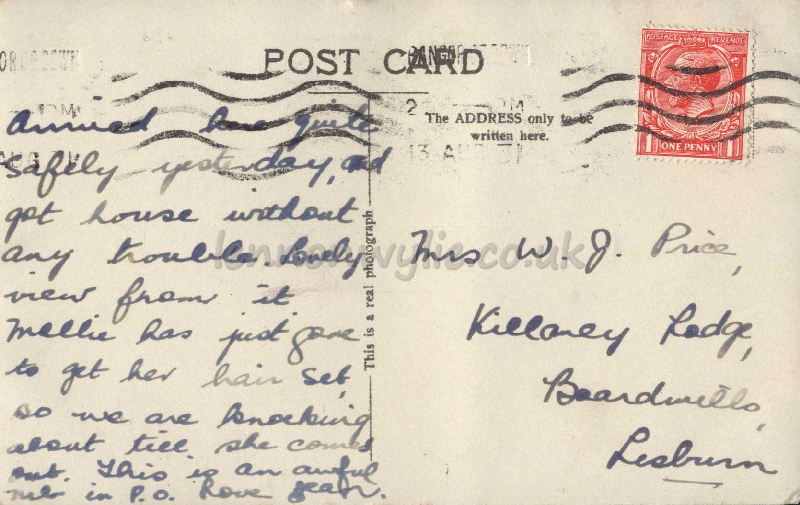 POST CARD
POSTAGE REVENUE
ONE PENNY
The ADDRESS only to be
written here.
13 AUG
This is a real photograph
lennonwylie.co.uk
Arrived here quite
safely yesterday, and
got house without
any trouble. Lovely
view from it
Mellie has just gone
to get her hair set,
so we are knocking
about till she comes
out. This is an awful
nib in P.O. Love Jean.
Mrs W. J. Price,
Killaney Lodge,
Boardmills,
Lisburn